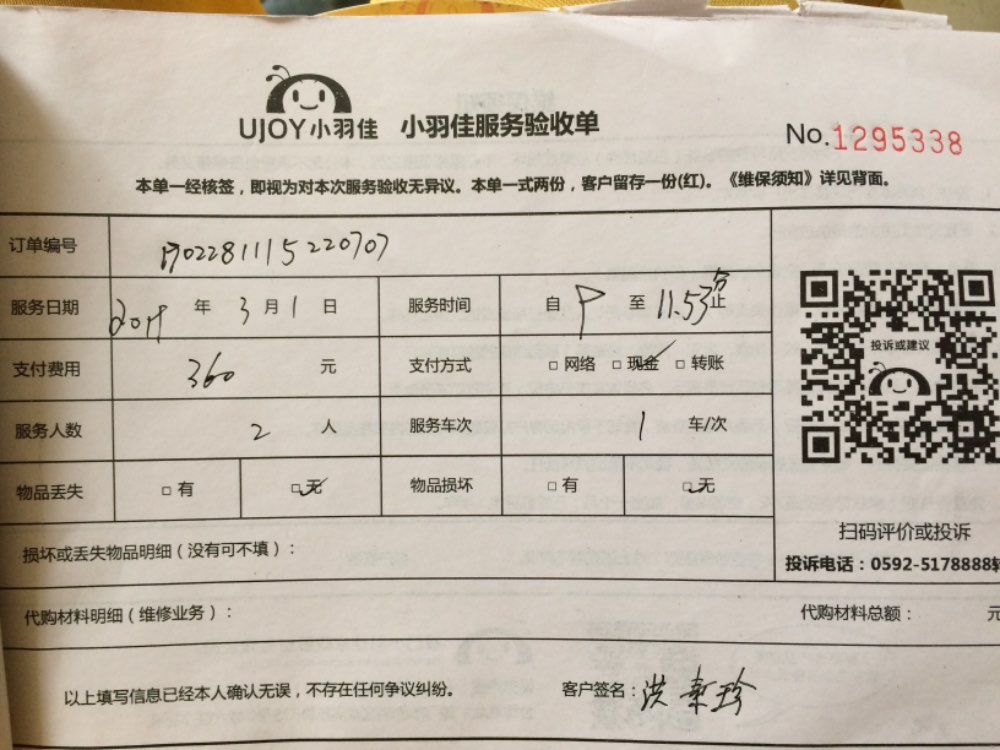 UJOY小羽佳 小羽佳服务验收单
No.1295338
本单一经核签，即视为对本次服务验收无异议。本单一式两份，客户留存一份(红)。《维保须知》详见背面。
订单编号 1702281115220707
服务日期 年 3 月 1 日 服务时间 自 至 11.53分 止
支付费用 360 元 支付方式 □ 网络 □ 现金 □ 转账
投诉或建议
服务人数 2 人 服务车次 1 车/次
物品丢失 □ 有 □ 无 物品损坏 □ 有 □ 无
扫码评价或投诉
损坏或丢失物品明细（没有可不填）：
投诉电话：0592-5178888转
代购材料明细（维修业务）： 代购材料总额： 元
以上填写信息已经本人确认无误，不存在任何争议纠纷。 客户签名：洪 珍